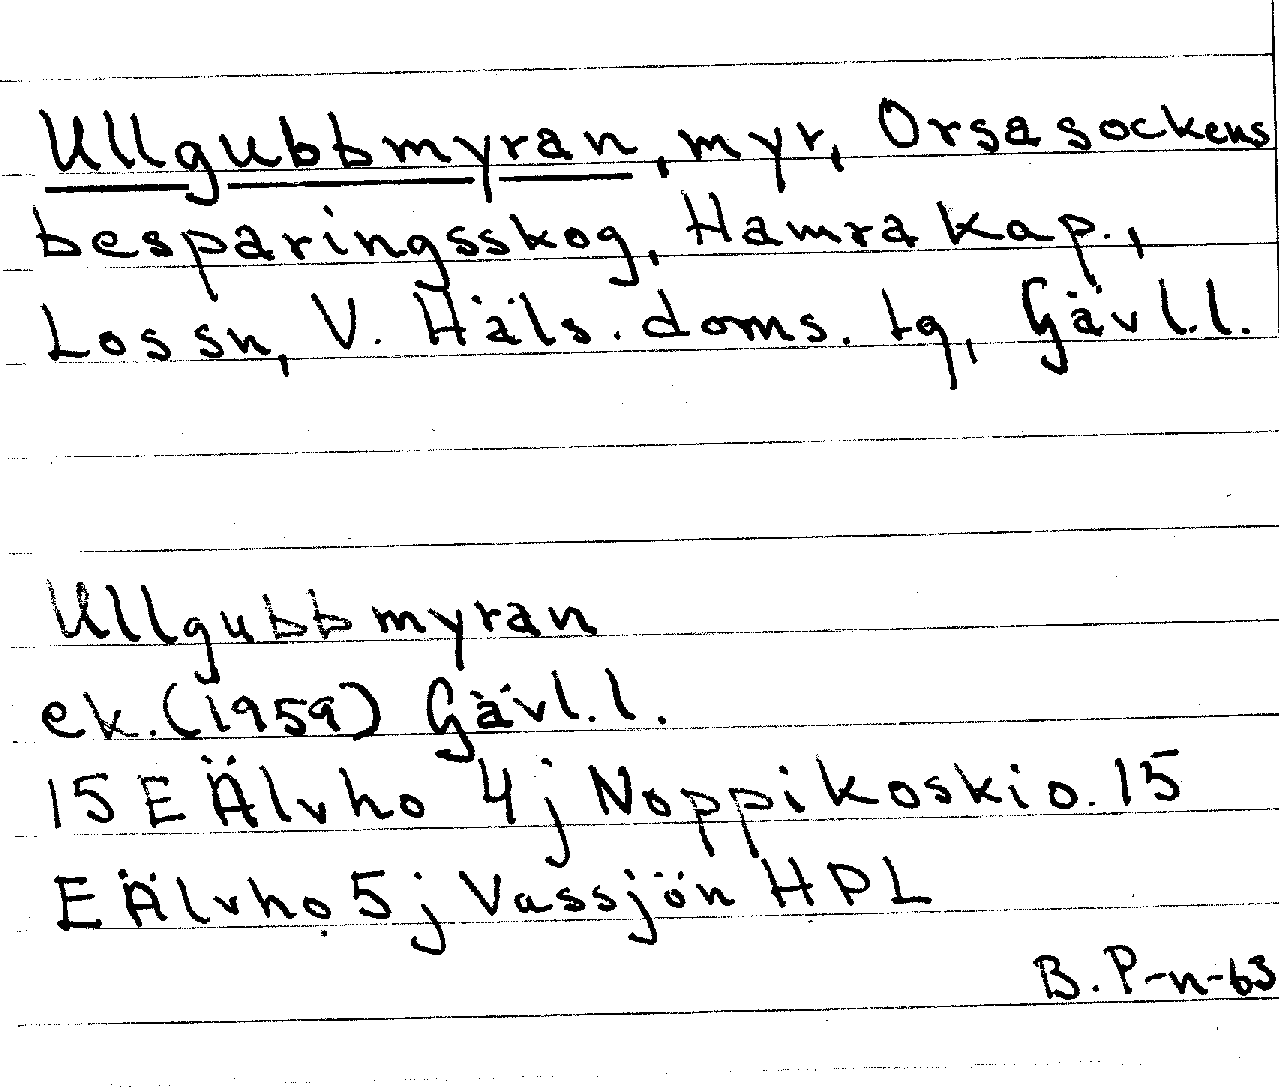 Ullgubbmyran, myr, Orsa sockens
besparingsskog, Hamra kap.,
Los sn, V. Häls. doms. tg, Gävl.l.
Ullgubbmyran
ek. (1959) Gävl.l.
15 E Älvho 4 j Noppikoski o. 15
E Älvho 5 j Vassjön HPL
B. P-n-63